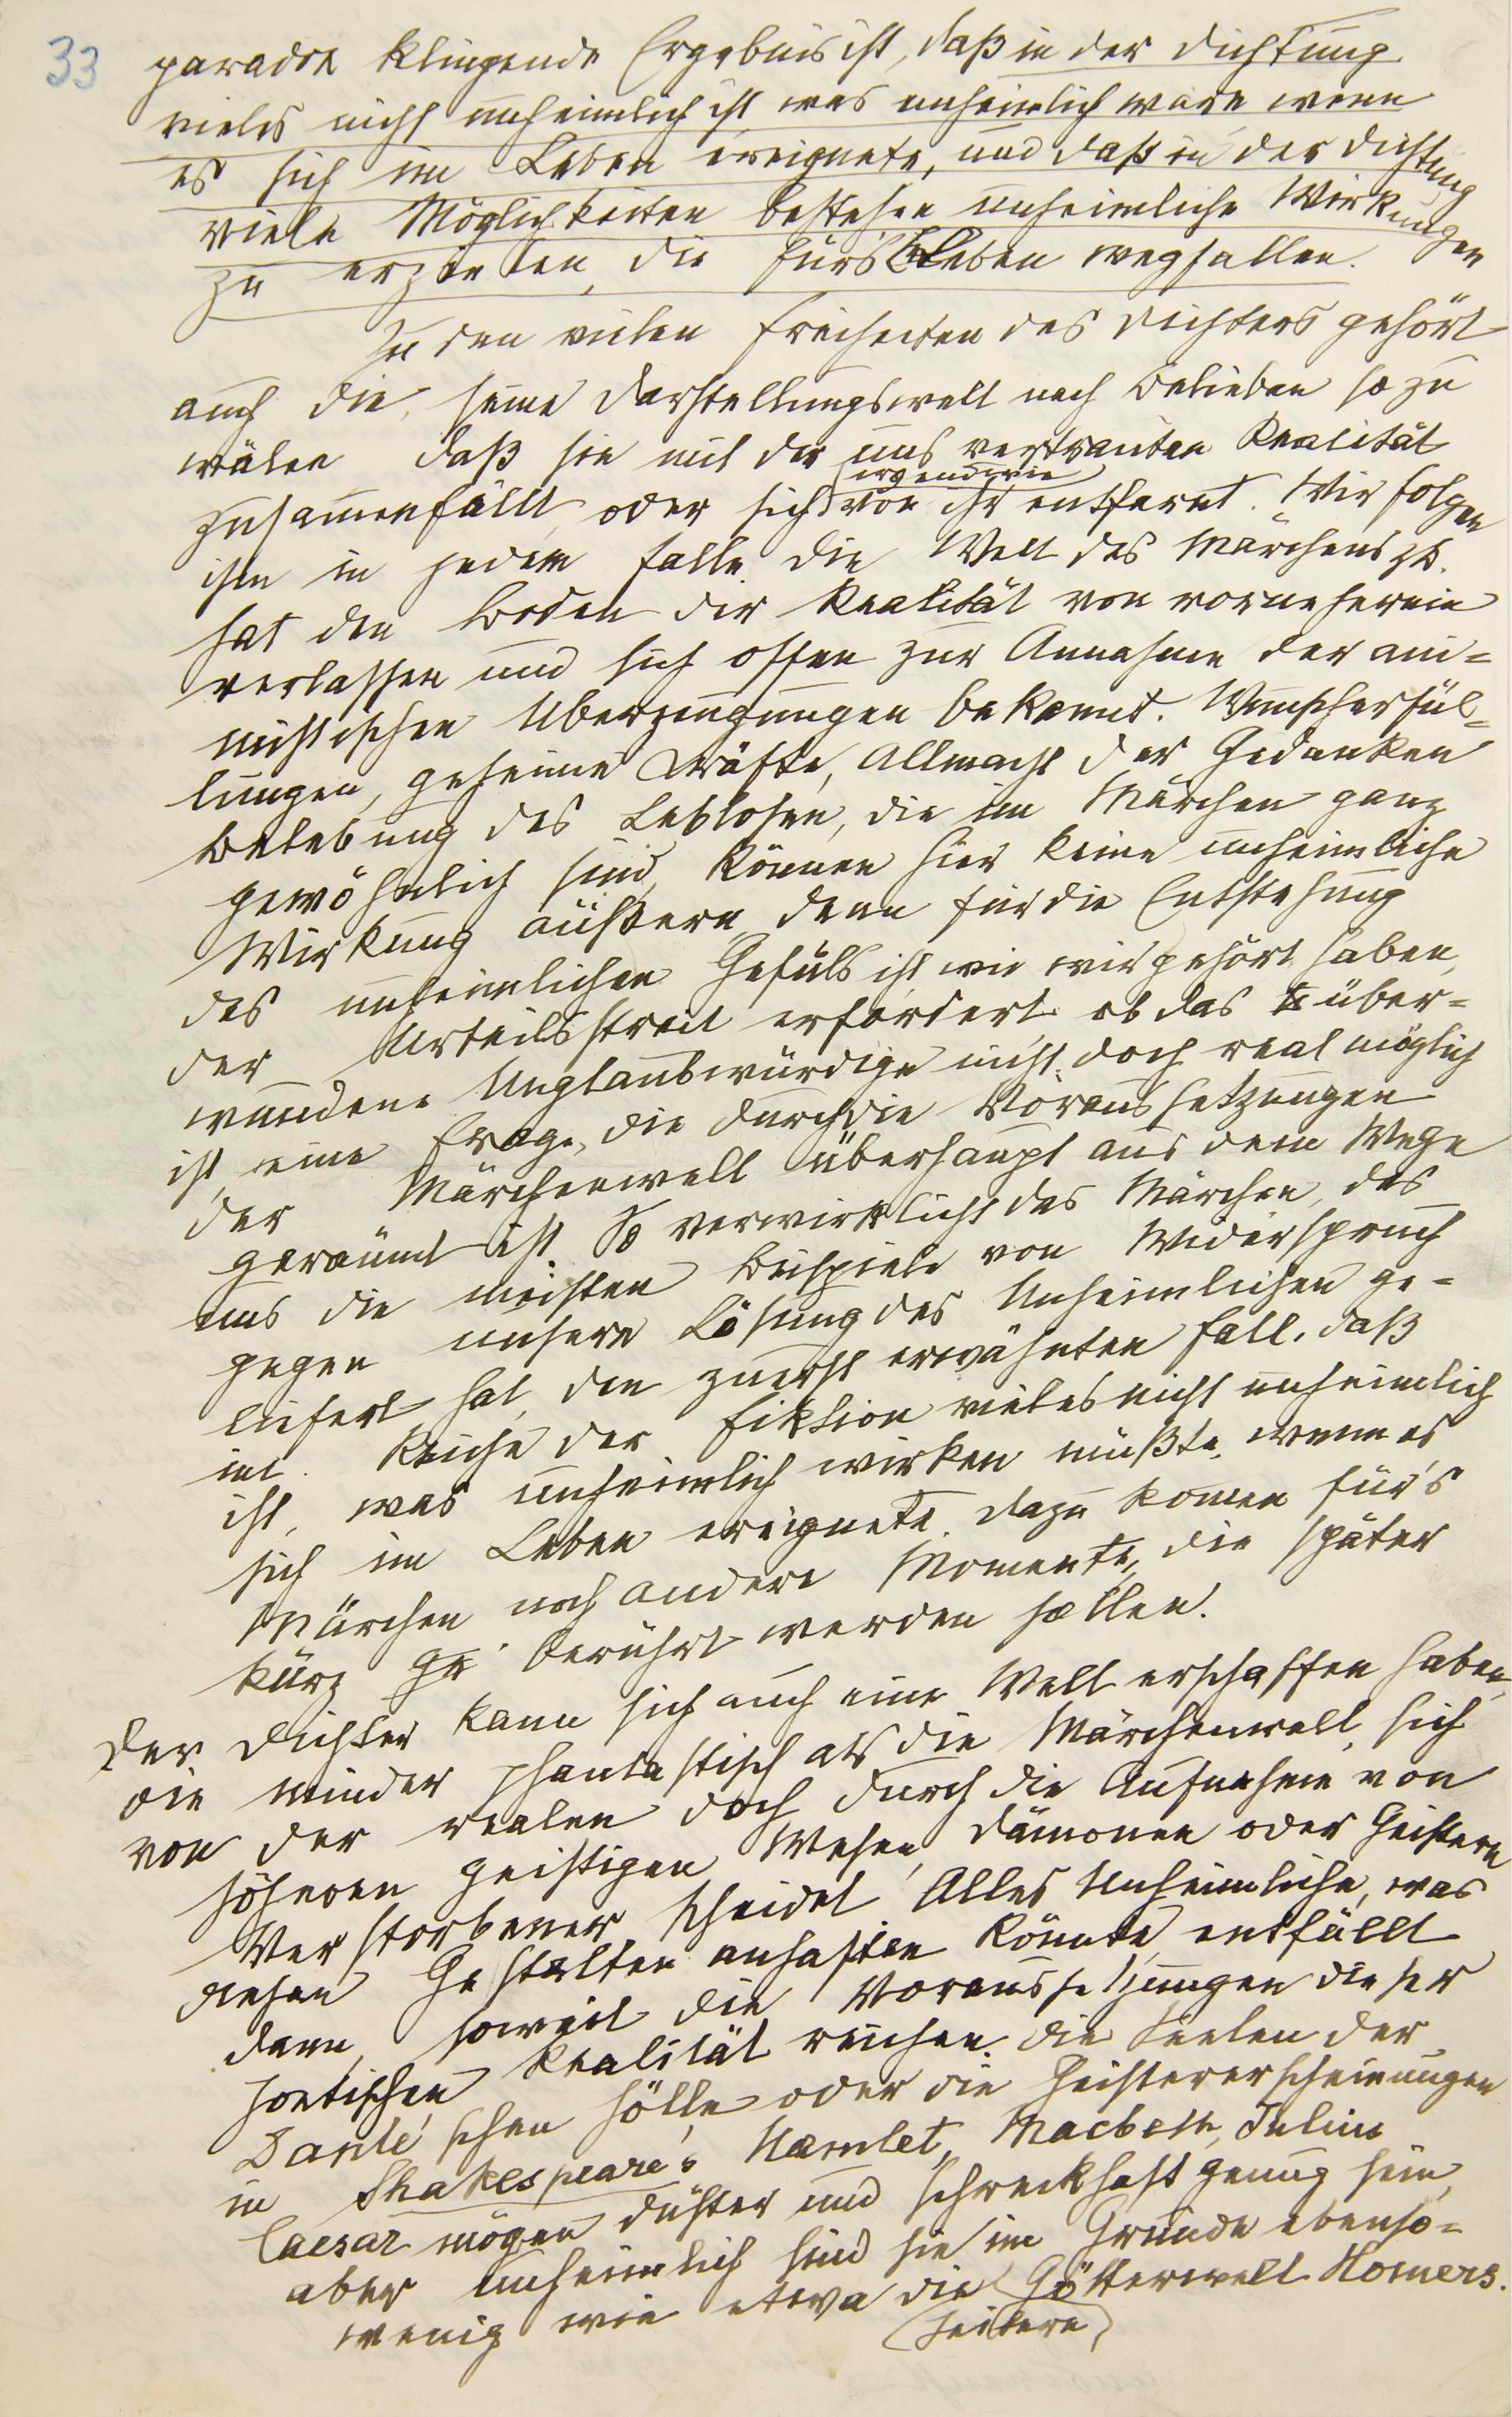 33
paradox klingende Ergebnis ist, daß in der Dichtung
vieles nicht unheimlich ist was unheimlich wäre wenn
es sich im Leben ereignete, und daß in der Dichtung
viele Möglichkeiten bestehen unheimliche Wirkungen
zu erzielen, die fürs Leben wegfallen.
Zu den vielen Freiheiten des Dichters gehört
auch die, seine Darstellungswelt nach Belieben so zu
wälen daß sie mit der uns vertrauten Realität
irgendwie
zusammenfällt oder sich von ihr entfernt. Wir folgen
ihm in jedem Falle. Die Welt des Märchens zB.
hat den Boden der Realität von vorneherein
verlassen und sich offen zur Annahme der ani=
mistischen Überzeugungen bekannt. Wunscherfül=
lungen, geheime Kräfte, Allmacht der Gedanken
Belebung des Leblosen, die im Märchen ganz
gewöhnlich sind, können hier keine unheimliche
Wirkung äußern, denn für die Entstehung
des unheimlichen Gefüls ist wie wir gehört haben,
der Urteilsstreit erfordert ob das über=
wundene Unglaubwürdige nicht doch real möglich
ist, eine Frage, die durch die Voraussetzungen
der Märchenwelt überhaupt aus dem Wege
geräumt ist. So verwirklicht das Märchen, das
uns die meisten Beispiele von Widerspruch
gegen unsere Lösung des Unheimlichen ge=
liefert hat, den zuerst erwähnten Fall, daß
im Reiche der Fiktion vieles nicht unheimlich
ist, was unheimlich wirken müßte, wenn es
sich im Leben ereignete. Dazu komen für's
Märchen noch andere Momente, die später
kurz berührt werden sollen.
Der Dichter kann sich auch eine Welt erschaffen haben,
die minder phantastisch als die Märchenwelt, sich
von der realen doch durch die Aufnahme von
höheren geistigen Wesen, Dämonen oder Geistern
Verstorbener scheidet. Alles Unheimliche, was
diesen Gestalten anhaften könnte, entfällt
dann, soweit die Voraussetzungen dieser
poetischen Realität reichen. Die Seelen der
Dante'schen Hölle oder die Geistererscheinungen
in Shakespeare's Hamlet, Macbeth, Julius
Caesar mögen düster und schreckhaft genug sein,
aber unheimlich sind sie im Grunde ebenso=
wenig wie etwa die Götterwelt Homers.
heitere